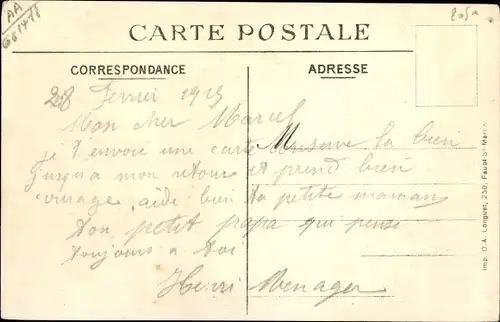 AA
661418
CARTE POSTALE
CORRESPONDANCE
ADRESSE
28 Fevrier 1915
Mon cher Marcel
je t'envoie une carte conserve la bien
jusqu'a mon retour et prend bien
courage, aide bien ta petite maman
ton petit papa qui pense
toujours a toi
Henri Menager
Imp. D.A. Longuet, 250, Faubg St-Martin